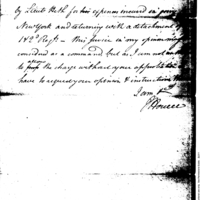 by Lieut Heth for his expences incurred in going
New York and returning with a detachment
182d Regt. – This service in my opinion might
considered as a command but as I am not
allow
to pass the charge without your approbation
have to request your opinion & instructions
I am &c